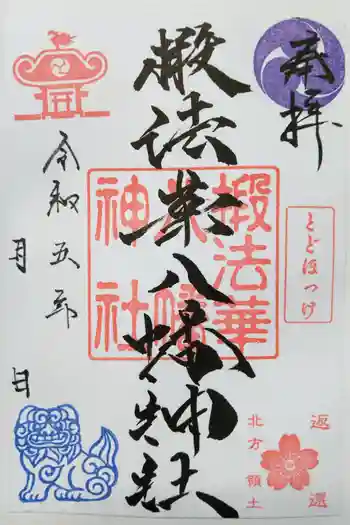 奉拝
とどほっけ
返還
北方領土
椴法華八幡神社
椴法華
八幡
神社
令和五年
月
日